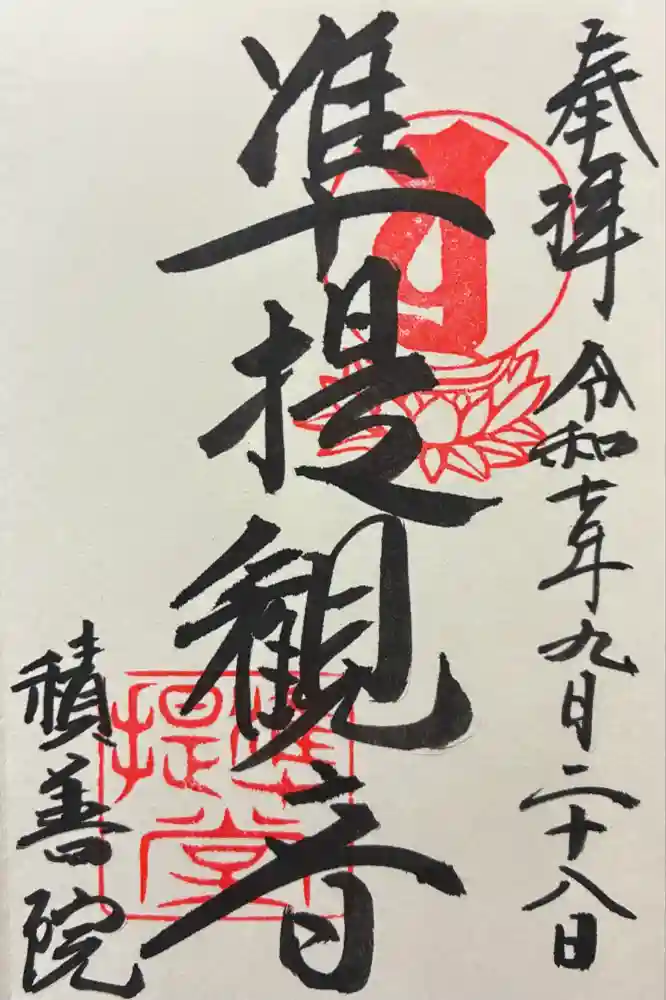 奉拝 令和七年九月二十八日
准提観音
准提堂
積善院